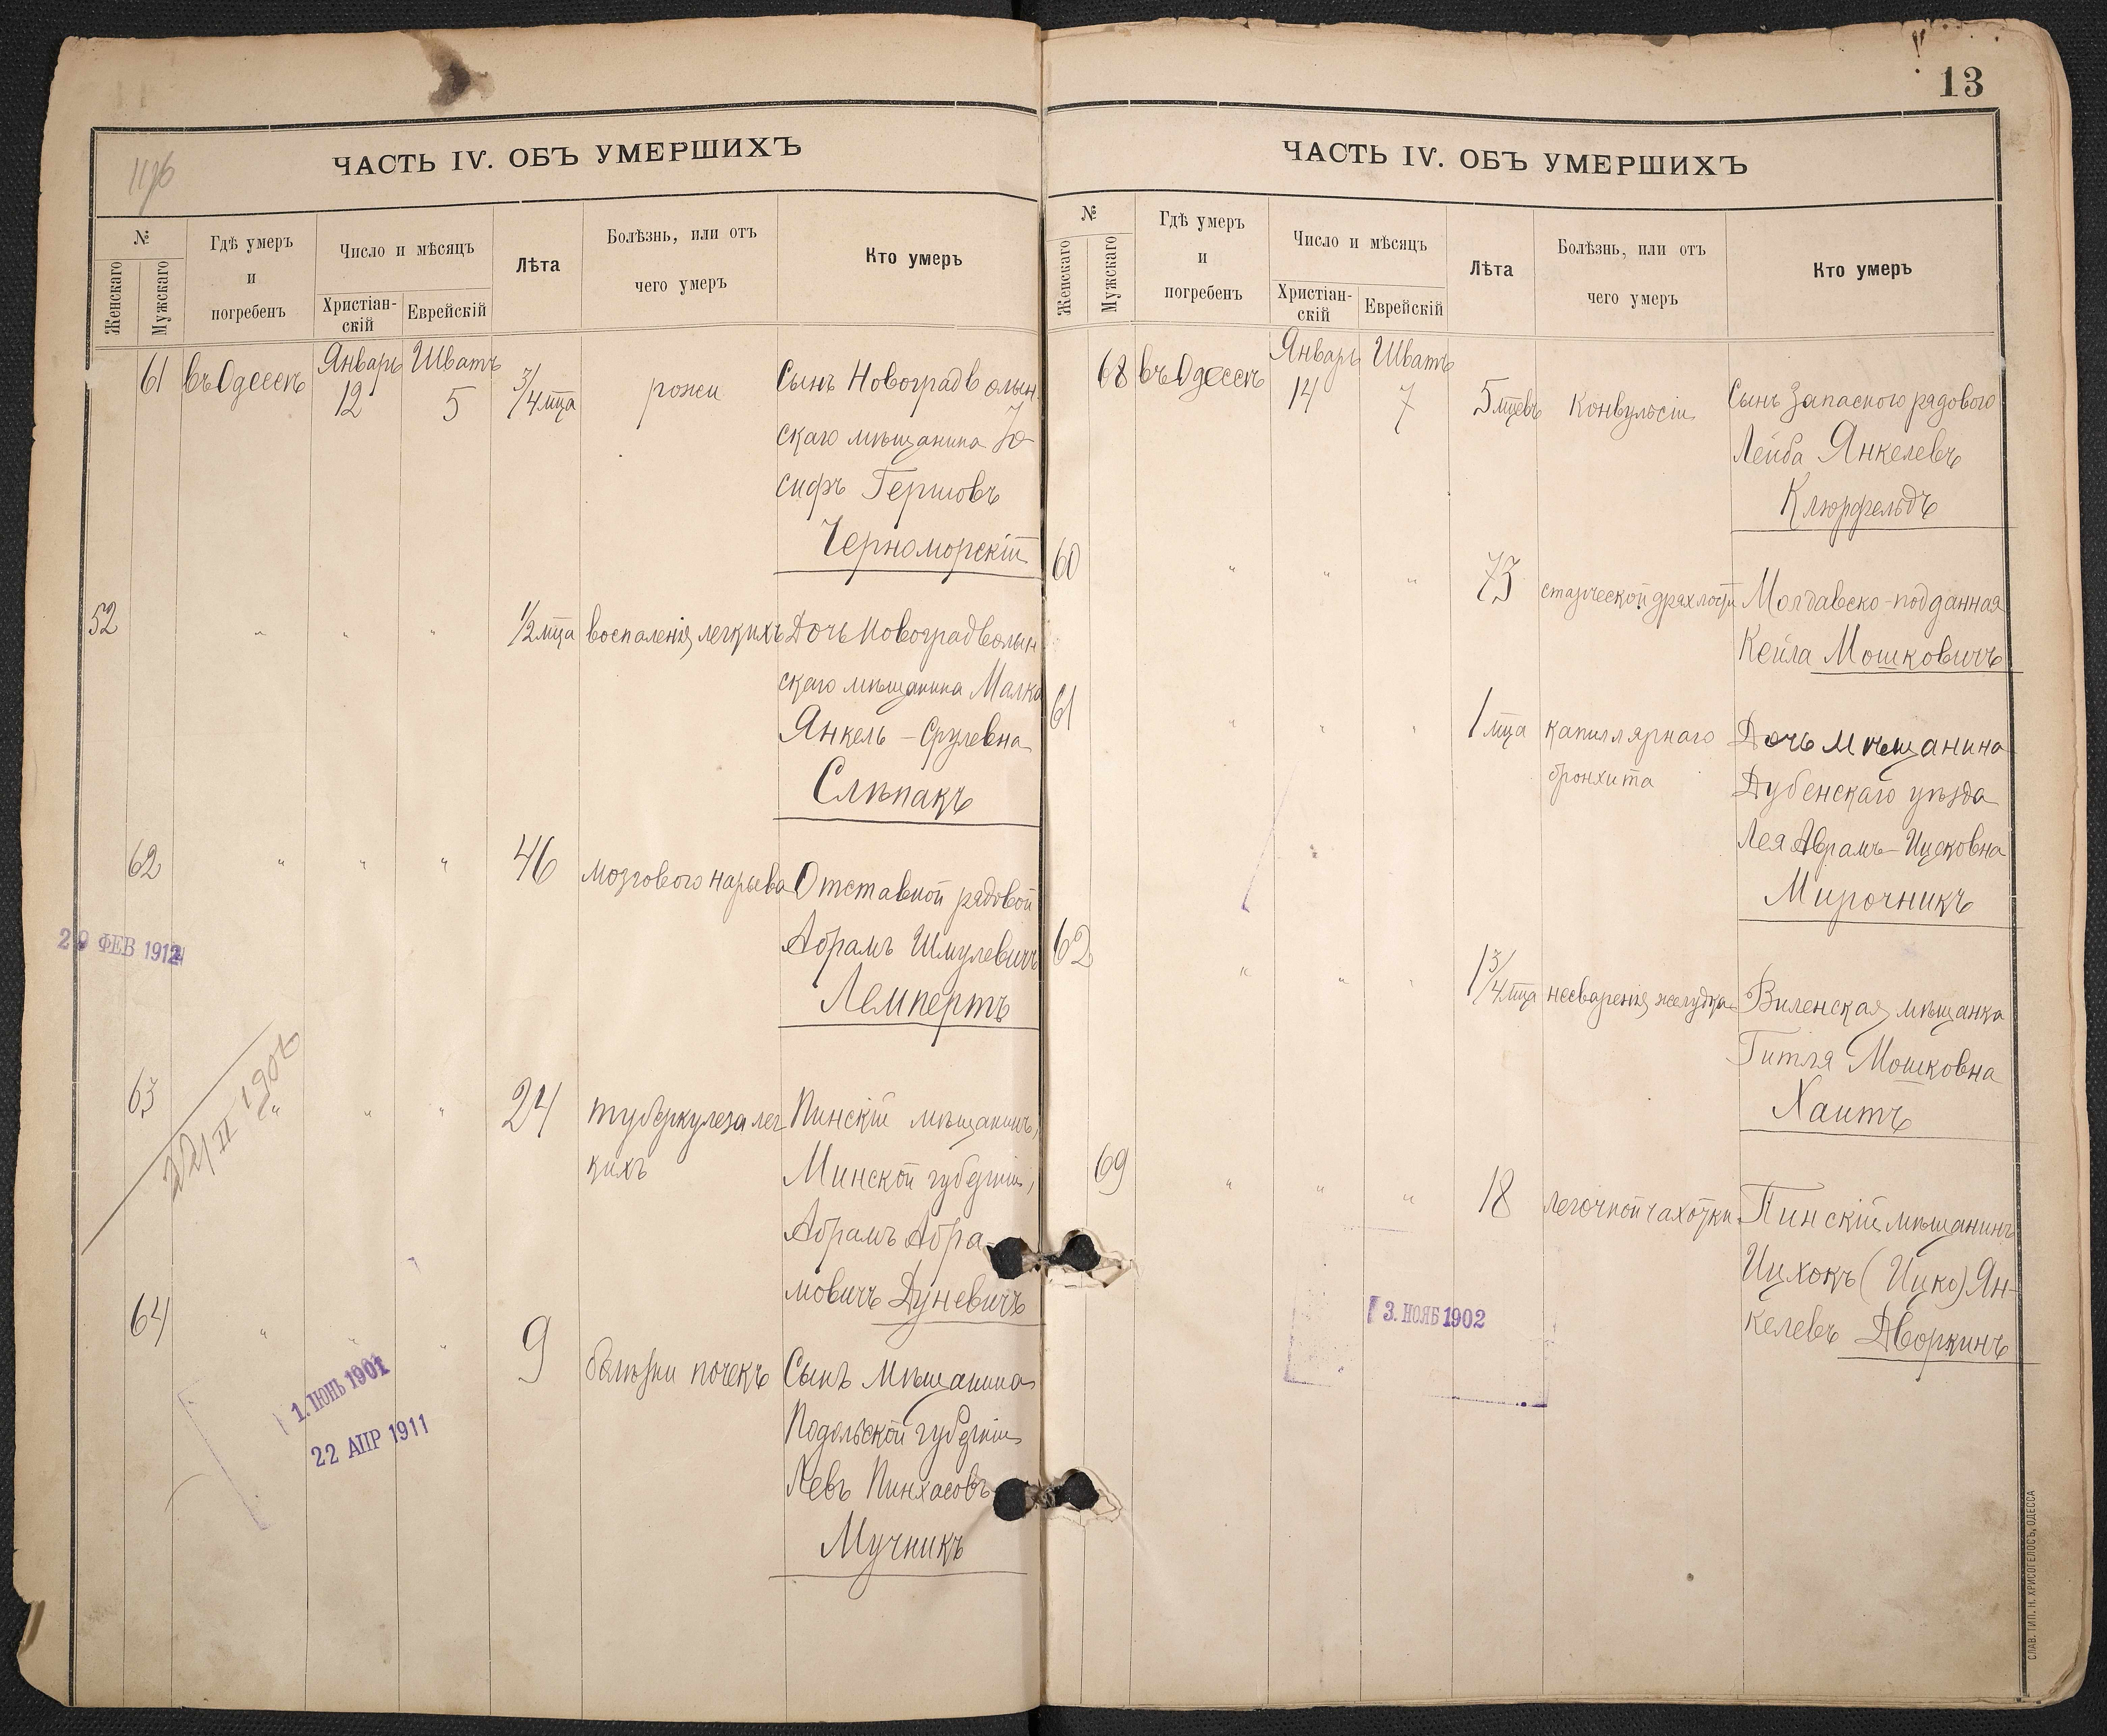 1176
ЧАСТЬ IV. ОБЪ УМЕРШИХЪ
№
Женскаго
Мужскаго
Гдѣ умеръ
и
погребенъ
Число и мѣсяцъ
Христіан-
скій
Еврейскій
Лѣта
Болѣзнь, или отъ
чего умеръ
Кто умеръ
61 въ Одессѣ Январь 12 Шватъ 5 3/4 мца рожи Сынъ Новоградволын-
скаго мѣщанина Іо-
сифъ Гершовъ
Черноморскій
52 " " " 1/2 мца воспаленія легкихъ Дочь Новоградволын
скаго мѣщанина Малка
Янкель-Срулевна
Слѣпакъ
62 " " " 46 мозгового нарыва Отставной рядовой
Абрамъ Шмулевичъ
Лемпертъ
29 ФЕВ 1912
63 " " " 24 туберкулеза лег Пинскій мѣщанинъ,
кихъ Минской губерніи,
Абрамъ Абра-
мовичъ Дуневичъ
II 1906
64 " " " 9 болѣзни почекъ Сынъ Мѣщанина
Подольской губерніи
Левъ Пинхасовъ
Мучникъ
1. ІЮНЬ 1901
22 АПР 1911
13
ЧАСТЬ IV. ОБЪ УМЕРШИХЪ
№
Женскаго
Мужскаго
Гдѣ умеръ
и
погребенъ
Число и мѣсяцъ
Христіан-
скій
Еврейскій
Лѣта
Болѣзнь, или отъ
чего умеръ
Кто умеръ
68 въ Одессѣ Январь 14 Шватъ 7 5 мцевъ Конвульсіи Сынъ Запасного рядового
Лейба Янкелевъ
Клюрфельдъ
60 " " " 73 старческой дряхлости Молдавско-подданная
Кейла Мошковичъ
61 " " " 1 мца капиллярнаго Дочь Мѣщанина
бронхита Дубенскаго уѣзда
Лея Абрамъ-Ицковна
Мирочникъ
62 " " " 1 3/4 мца несваренія желудка Виленская мѣщанка
Гитля Мошковна
Хаитъ
69 " " " 18 легочной чахотки Пинскій мѣщанинъ
Ицхокъ (Ицко) Ян-
келевъ Дворкинъ
3. НОЯБ 1902
СЛАВ. ТИП. Н. ХРИСОГЕЛОСЪ, ОДЕССА